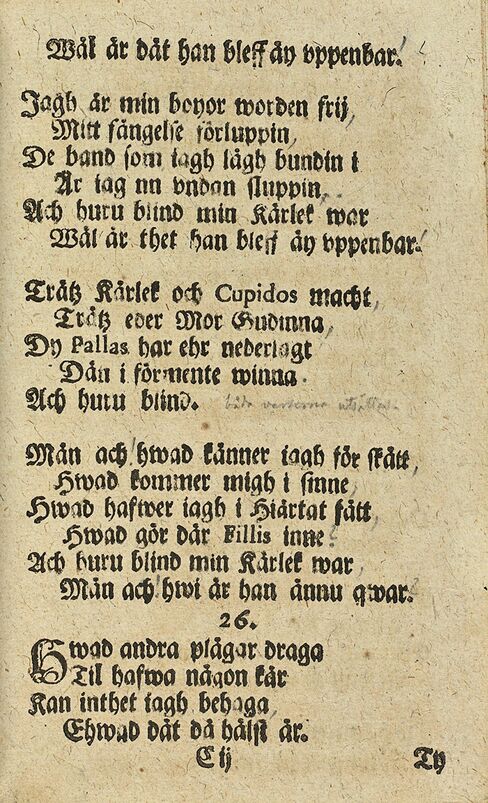 Wäl är dät han bleff äy vppenbar!
Jagh är min boyor worden frij,
Mitt fängelse förluppin,
De band som iagh lågh bundin i
Är iag nu vndan sluppin,
Ach huru blind min Kärlek war
Wäl är thet han bleff äy vppenbar!
Trätz Kärlek och Cupidos macht,
Trätz eder Mor Gudinna,
Dy Pallas har ehr nederlagt
Dän i förmente winna.
Ach huru blind. båda verserna
Män ach! hwad känner iagh för skätt,
Hwad kommer migh i sinne,
Hwad hafwer iagh i Hiärtat fätt,
Hwad gör där Fillis inne?
Ach huru blind min Kärlek war,
Män ach! hwi är han ännu qwar.
26.
Hwad andra plågar draga
Til hafwa någon kär
Kan inthet iagh behaga,
Ehwad dät då hälst är.
C ij Ty